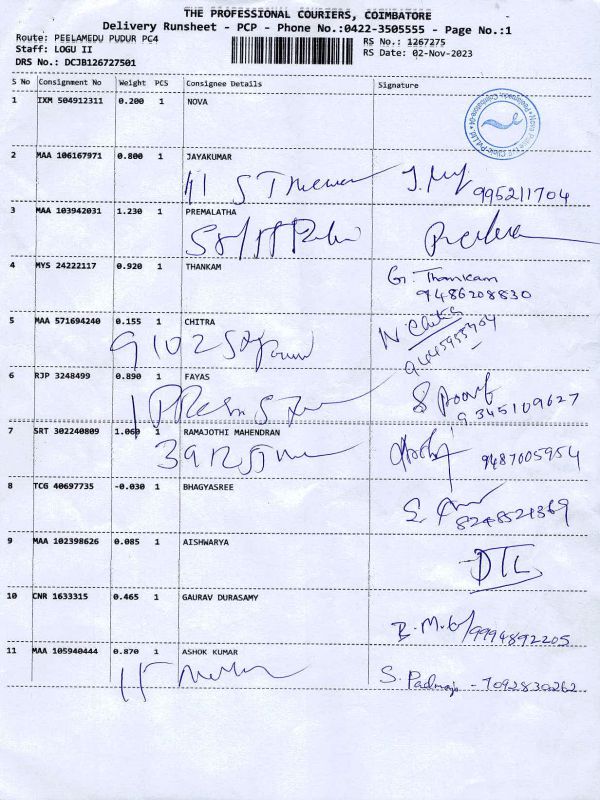 THE PROFESSIONAL COURIERS, COIMBATORE
Delivery Runsheet - PCP - Phone No.:0422-3505555 - Page No.:1
Route: PEELAMEDU PUDUR PC4
Staff: LOGU II
DRS No.: DCJB126727501
RS No.: 1267275
RS Date: 02-Nov-2023
S No Consignment No Weight PCS Consignee Details Signature
1 IXM 504912311 0.200 1 NOVA
2 MAA 106167971 0.800 1 JAYAKUMAR
9952111704
3 MAA 103942031 1.230 1 PREMALATHA
4 MYS 24222117 0.920 1 THANKAM
G. Thankam
9486208830
5 MAA 571694240 0.155 1 CHITRA
N. Chitra
6 RJP 3248499 0.890 1 FAYAS
9345109627
7 SRT 302240809 1.060 1 RAMAJOTHI MAHENDRAN
9487005954
8 TCG 40697735 -0.030 1 BHAGYASREE
8248521369
9 MAA 102398626 0.085 1 AISHWARYA
DTC
10 CNR 1633315 0.465 1 GAURAV DURASAMY
9994892205
11 MAA 105940444 0.870 1 ASHOK KUMAR
S. Padmaja - 7092830262